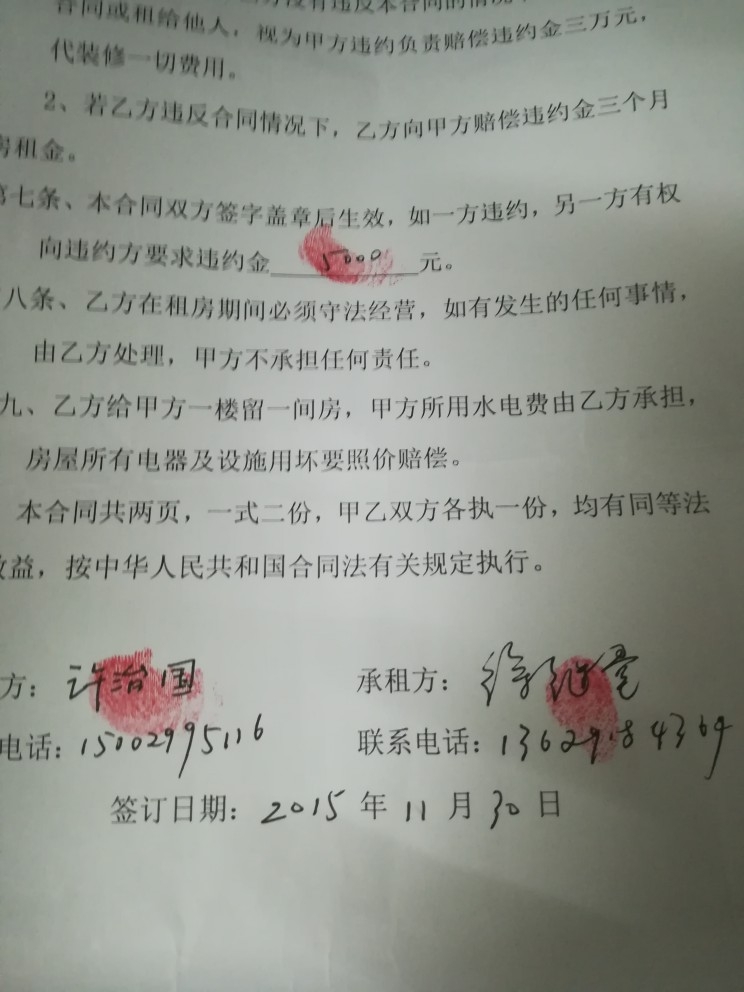 合同或租给他人，视为甲方违约负责赔偿违约金三万元，
代装修一切费用。
2、若乙方违反合同情况下，乙方向甲方赔偿违约金三个月
房租金。
第七条、本合同双方签字盖章后生效，如一方违约，另一方有权
向违约方要求违约金 5000 元。
八条、乙方在租房期间必须守法经营，如有发生的任何事情，
由乙方处理，甲方不承担任何责任。
九、乙方给甲方一楼留一间房，甲方所用水电费由乙方承担，
房屋所有电器及设施用坏要照价赔偿。
本合同共两页，一式二份，甲乙双方各执一份，均有同等法
效益，按中华人民共和国合同法有关规定执行。
方：许治国 承租方：
电话：15002995116 联系电话：13629184364
签订日期：2015年11月30日